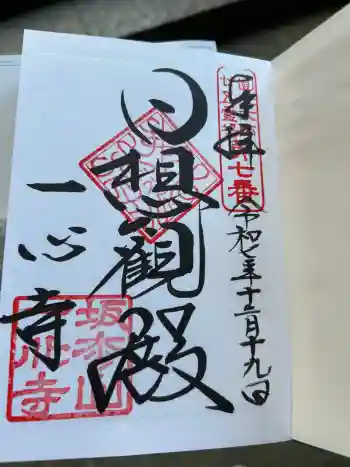 奉拝
七番
令和七年十二月十九日
日想観殿
一心寺
坂松山
一心寺